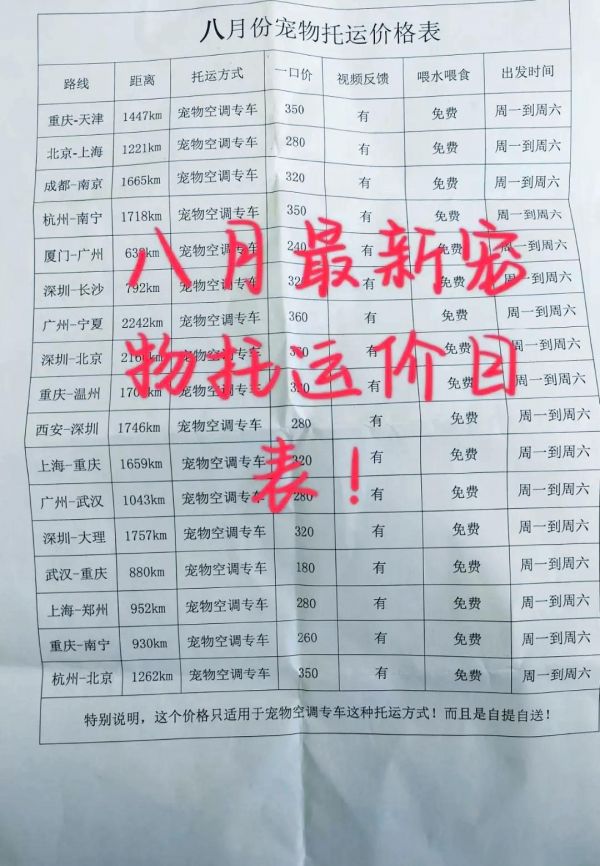 八月份宠物托运价格表
路线 距离 托运方式 一口价 视频反馈 喂水喂食 出发时间
重庆-天津 1447km 宠物空调专车 350 有 免费 周一到周六
北京-上海 1221km 宠物空调专车 280 有 免费 周一到周六
成都-南京 1665km 宠物空调专车 320 有 免费 周一到周六
杭州-南宁 1718km 宠物空调专车 350 有 免费 周一到周六
厦门-广州 宠物空调专车 240 有 免费 周一到周六
深圳-长沙 792km 宠物空调专车 有 免费 周一到周六
广州-宁夏 2242km 宠物空调专车 360 有 免费 周一到周六
深圳-北京 宠物空调专车 有 免费 周一到周六
重庆-温州 宠物空调专车 有 免费 周一到周六
西安-深圳 1746km 宠物空调专车 280 有 免费 周一到周六
上海-重庆 1659km 宠物空调专车 320 有 免费 周一到周六
广州-武汉 1043km 宠物空调专车 280 有 免费 周一到周六
深圳-大理 1757km 宠物空调专车 320 有 免费 周一到周六
武汉-重庆 880km 宠物空调专车 180 有 免费 周一到周六
上海-郑州 952km 宠物空调专车 280 有 免费 周一到周六
重庆-南宁 930km 宠物空调专车 260 有 免费 周一到周六
杭州-北京 1262km 宠物空调专车 350 有 免费 周一到周六
特别说明，这个价格只适用于宠物空调专车这种托运方式！而且是自提自送！
八月最新宠
物托运价目
表！